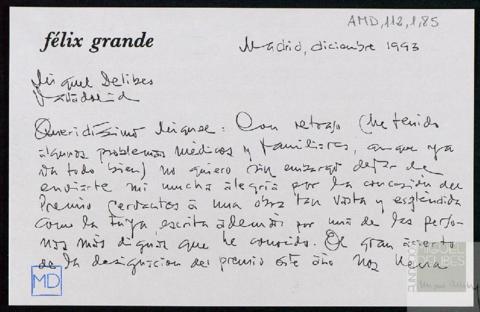 AMD,112,1,85
félix grande
Madrid, diciembre 1993
Miguel Delibes
Valladolid
Queridísimo Miguel: Con retraso (he tenido
algunos problemas médicos y familiares, aunque ya
va todo bien) no quiero sin embargo dejar de
enviarte mi mucha alegría por la concesión del
Premio Cervantes a una obra tan vasta y espléndida
como la tuya escrita además por una de las perso-
nas más dignas que he conocido. El gran acierto
de la designación del premio este año nos llena
MD
FUNDACIÓN
MIGUEL
DELIBES